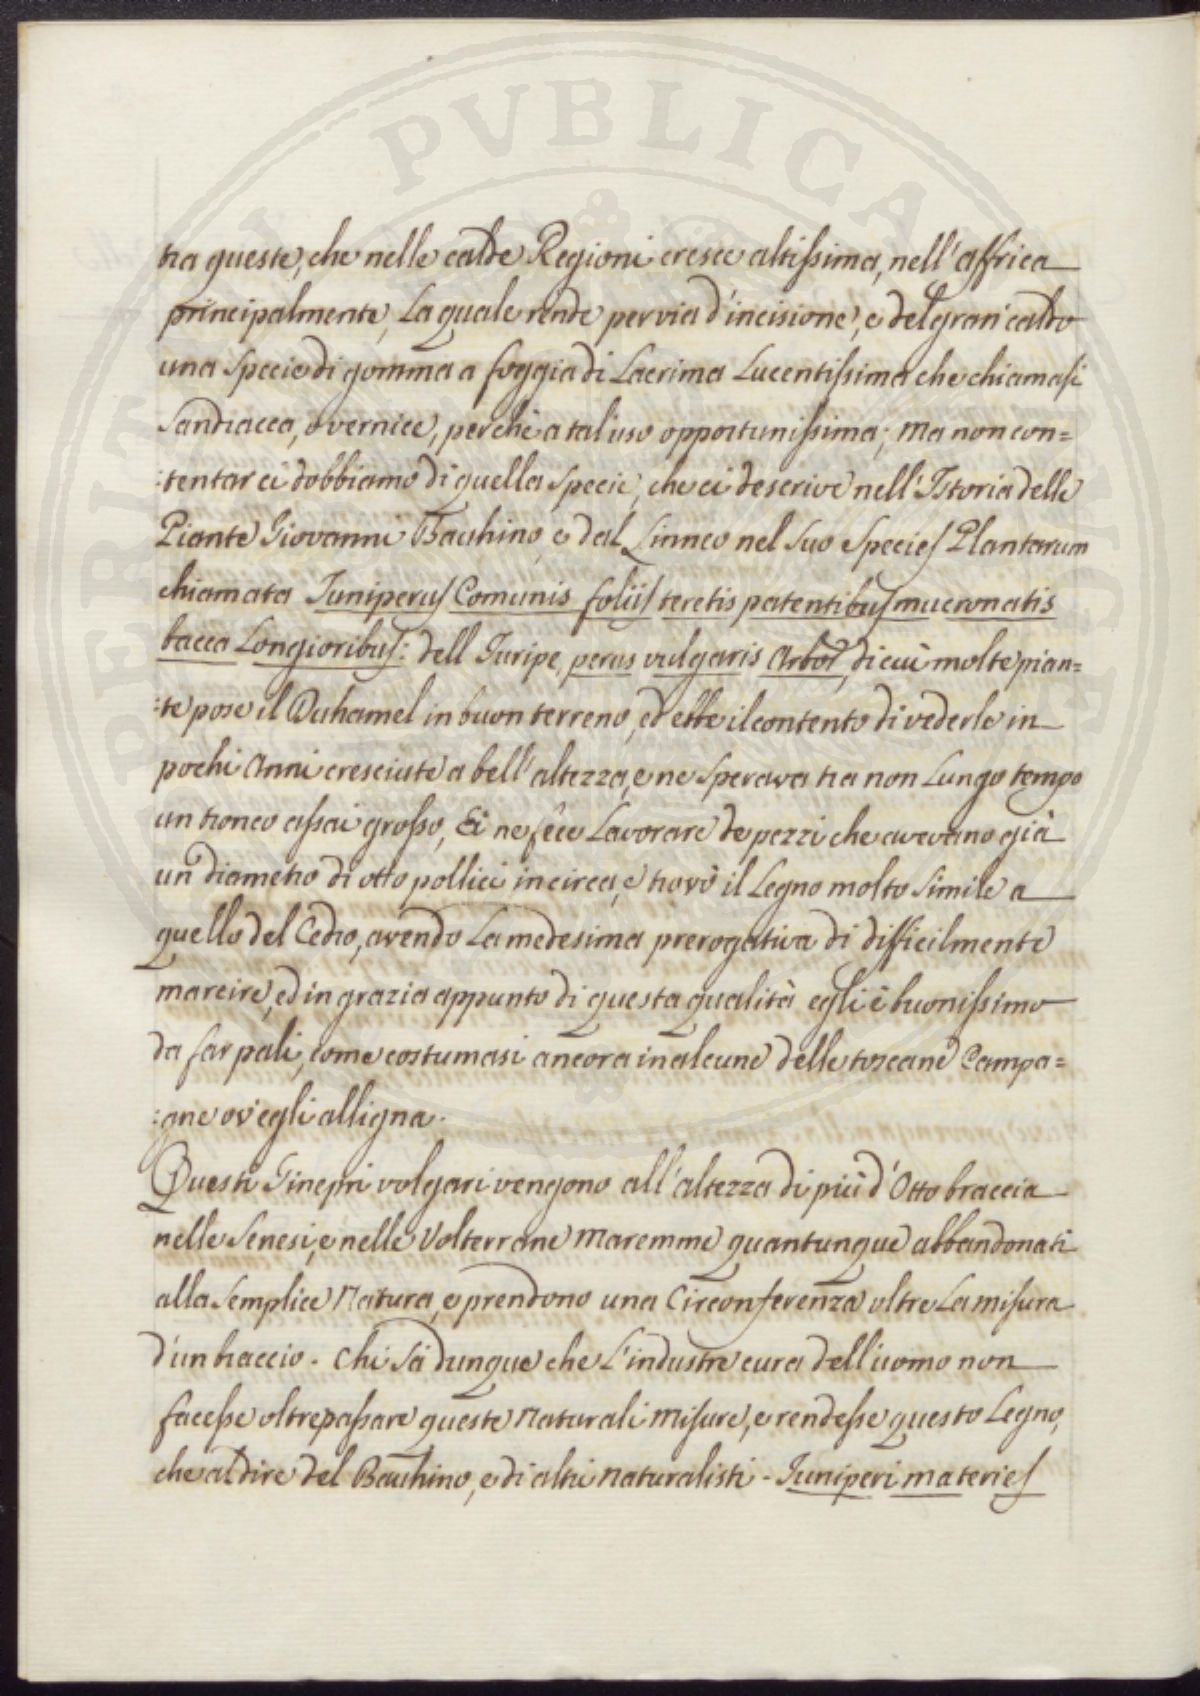 PERITAE PUBLICAE
tra queste, che nelle calde Regioni cresce altissima, nell'affrica
principalmente, La quale rende per via d'incisione, e del gran caldo
una specie di gomma a foggia di Lacrima Lucentissima che chiamasi
Sandracca, o vernice, perchè a tal uso opportunissima; Ma non con=
:tentar ci dobbiamo di quella specie, che ci descrive nell'Istoria delle
Piante Giovanni Bauhino, e dal Linneo nel suo Species Plantarum
chiamata Juniperus Comunis foliis teretis patentibus mucronatis
bacca Longioribus: dell Juripe, perus vulgaris Arbor, di cui molte pian=
:te pose il Duhamel in buon terreno, ed ebbe il contento di vederle in
pochi Anni cresciute a bell'altezza, e ne sperava tra non Lungo tempo
un tronco assai grosso, Ei ne fece Lavorare de pezzi che avevano già
un diametro di otto pollici incirca, e trovò il Legno molto simile a
quello del Cedro, avendo La medesima prerogativa di difficilmente
marcire, ed in grazia appunto di questa qualità egli è buonissimo
da far pali, come costumasi ancora in alcune delle toscane Campa=
:gne ov'egli alligna.
Questi Ginepri volgari vengono all'altezza di più d'Otto braccia
nelle Senesi, e nelle Volterrane Maremme quantunque abbandonati
alla Semplice Natura, e prendono una Circonferenza oltre La misura
d'un braccio. Chi sà dunque che L'industre cura dell'uomo non
facesse oltrepassare queste Naturali Misure, e rendesse questo Legno,
che al dire del Bauhino, e di altri Naturalisti - Juniperi materies